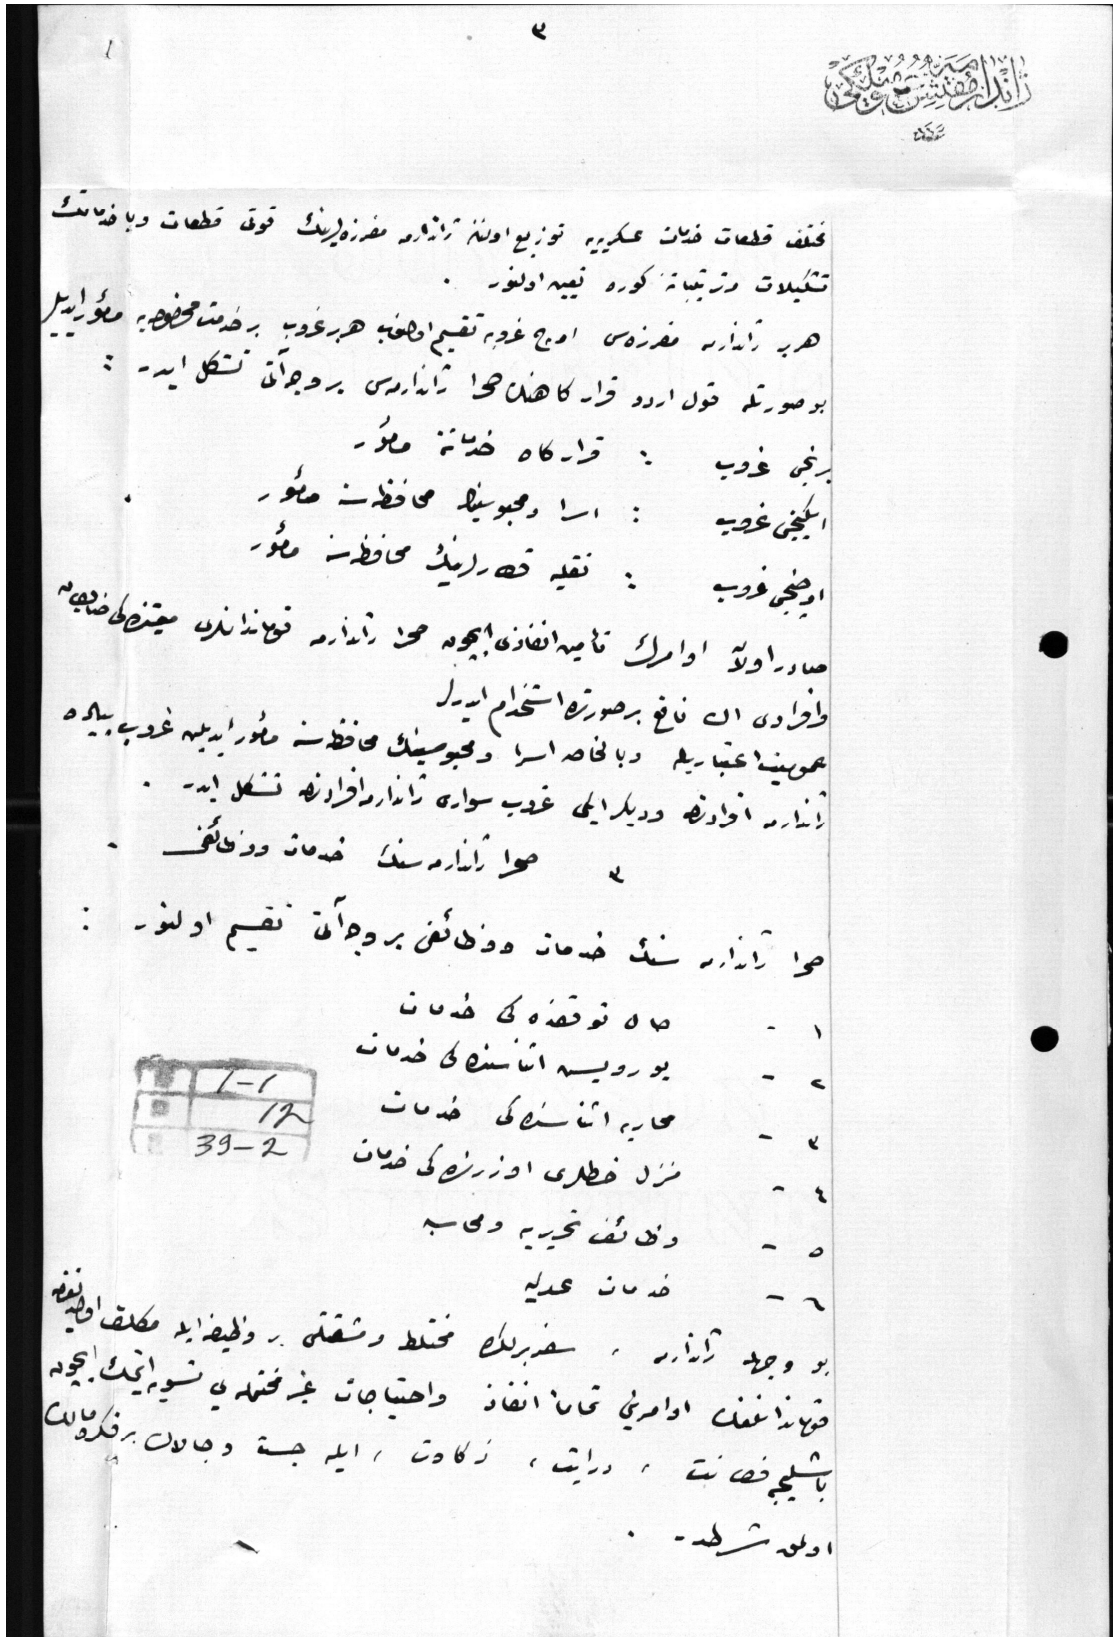 ٣
١
ژاندارمه مفتش عمومیلکی
مختلف قطعات خدمات عسکریه‌یه توزیع اولنان ژاندارمه مفرزه‌لرینك قوتی قطعات ویا خدماتك
تشکیلات و ترتیباتنه کوره تعیین اولنور .
هر بر ژاندارمه مفرزه‌سی اوچ غروبه تقسیم اولنوب هر بر غروب بر خدمت مخصوصه‌یه مأمور ایدیلیر
بو صورتله قول اردو قرارکاهنك صحرا ژاندارمه‌سی بر وجه آتی تشکل ایدر :
برنجی غروب : قرارکاه خدماتنه مأمور
ایکنجی غروب : اسرا و محبوسینك محافظه‌سنه مأمور
اوچنجی غروب : نقلیه قطارلرینك محافظه‌سنه مأمور
صادر اولان اوامرك تأمین انفاذی ایچون صحرا ژاندارمه قوماندانلری معیتنده‌کی ضابطان
و افرادی اڭ نافع بر صورتده استخدام ایدرلر
عمومیت اعتباریله و بالخاصه اسرا و محبوسینك محافظه‌سنه مأمور ایدیلن غروب پیاده
ژاندارمه افرادندن و دیکر ایکی غروب سواری ژاندارمه افرادندن تشکل ایدر .
٣ صحرا ژاندارمه‌سنك خدمات و وظائفی .
صحرا ژاندارمه‌سنك خدمات و وظائفی بر وجه آتی تقسیم اولنور :
١ - حال توقفده‌کی خدمات
٢ - یورویش اثناسنده‌کی خدمات
٣ - محاربه اثناسنده‌کی خدمات
٤ - منزل خطلری اوزرنده‌کی خدمات
٥ - وظائف تحریریه و محاسبه
٦ - خدمات عدلیه
1-1
12
39-2
بو وجهله ژاندارمه ، سفربرلکده مختلط و مشقتلی بر وظیفه ایله مکلف اولدیغندن
قوماندانلغك اوامرینی تماماً انفاذ و احتیاجات غیر محتمله‌یی تسویه ایتمك ایچون
باشلیجه فطانت ، درایت ، ذکاوت ، ایله جست و چالاك بر فکره مالك
اولمق شرطدر .